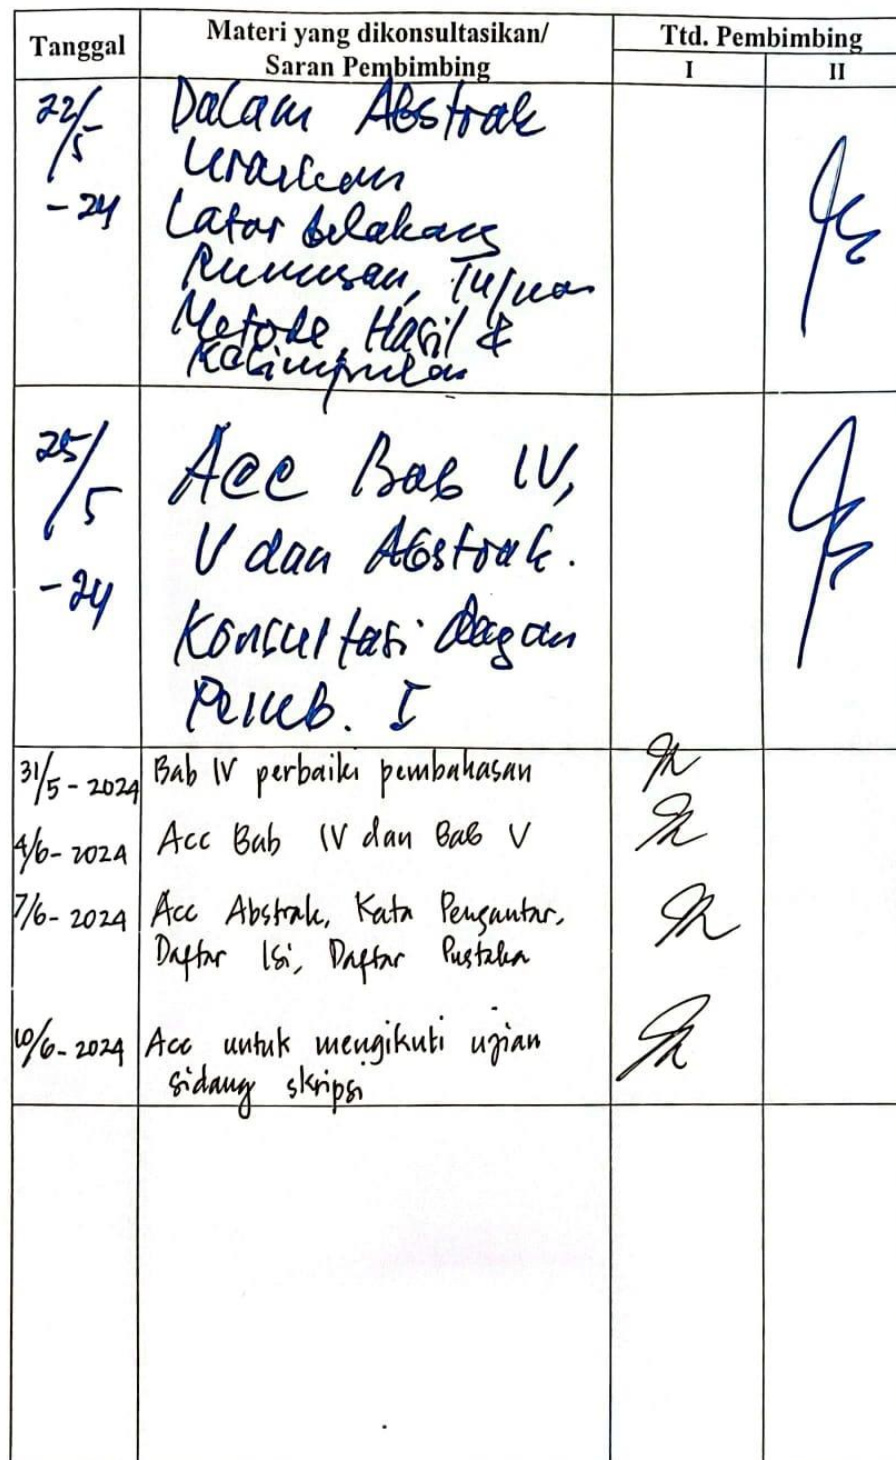 Tanggal
Materi yang dikonsultasikan/
Saran Pembimbing
Ttd. Pembimbing
I
II
22/5
-24
Dalam Abstrak
uraikan
Latar belakang
Rumusan, Tujuan
Metode, Hasil &
Kesimpulan
25/5
-24
Acc Bab IV,
V dan Abstrak.
Konsultasi dengan
Pemb. I
31/5-2024 Bab IV perbaiki pembahasan
4/6-2024 Acc Bab IV dan Bab V
7/6-2024 Acc Abstrak, Kata Pengantar,
Daftar Isi, Daftar Pustaka
10/6-2024 Acc untuk mengikuti ujian
sidang skripsi